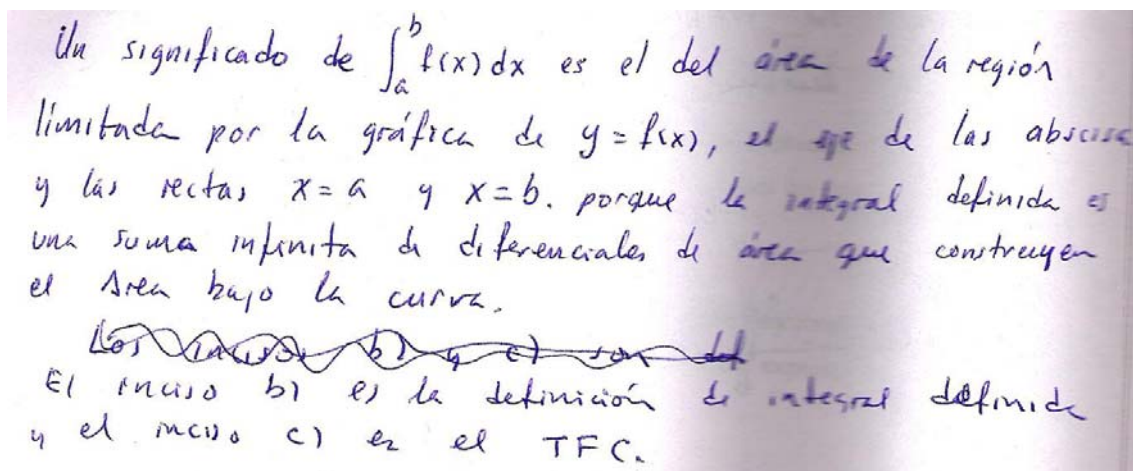 Un significado de ∫_a^b f(x) dx es el del área de la región
limitada por la gráfica de y = f(x), el eje de las abscisa
y las rectas x = a y x = b. porque la integral definida es
una suma infinita de diferenciales de área que construyen
el Area bajo la curva.
Los incisos b) y c) son def
El inciso b) es la definición de integral definida
y el inciso c) es el TFC.